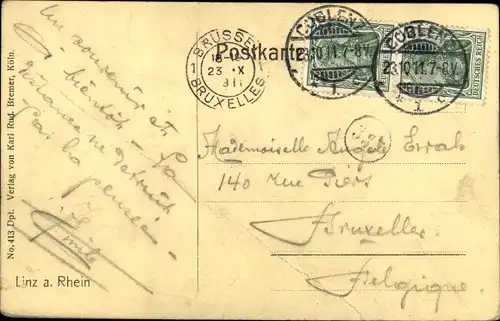 Postkarte
BRÜSSEL
23 X
1911
1 BRUXELLES 1
COBLENZ
23.10.11.7-8V.
1
COBLENZ
23.10.11.7-8V.
1
DEUTSCHES REICH
souvenir
à bientôt - La
distance ne détruit
pas la pensée -
Mademoiselle Angèle
140 rue
Bruxelles
Belgique.
Linz a. Rhein
No. 413 Dpl. Verlag von Karl Rud. Bremer, Köln.